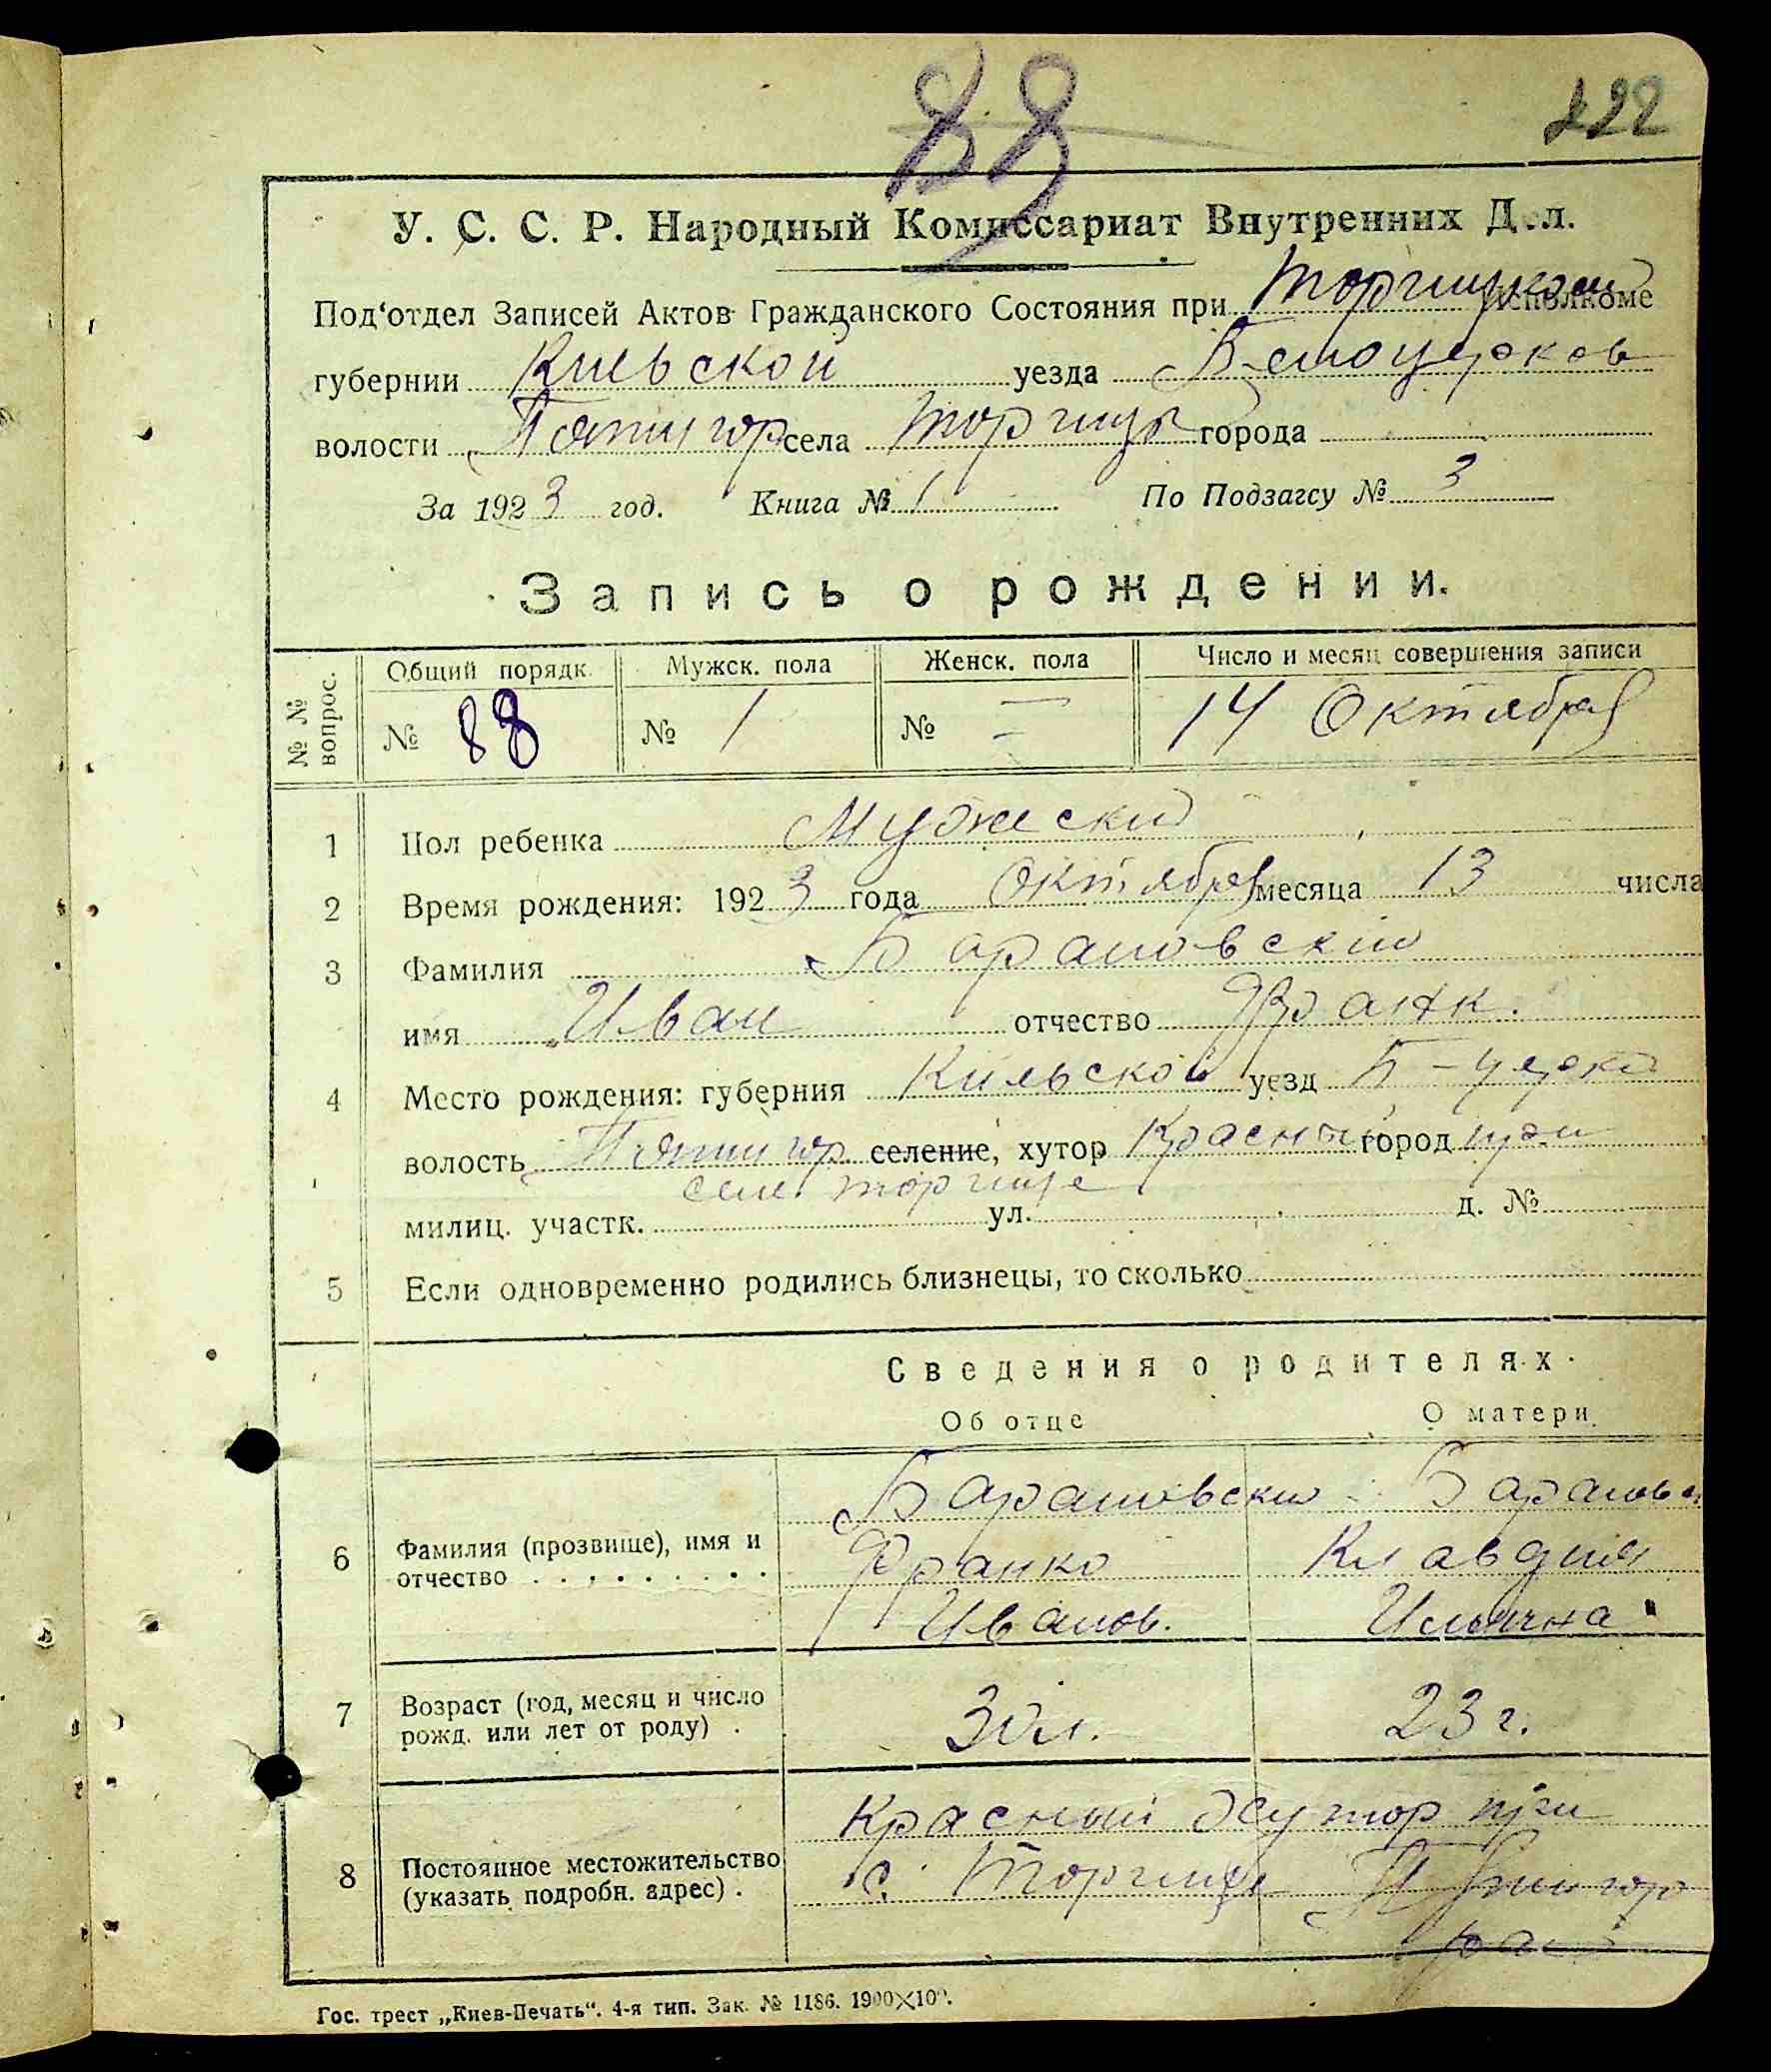 88
222
У. С. С. Р. Народный Комиссариат Внутренних Дел.
Под‘отдел Записей Актов Гражданского Состояния при Торчицком Исполкоме
губернии Киевской уезда Белоцерков
волости Пятигор села Торчицы города
За 1923 год. Книга № 1 По Подзагсу № 3
Запись о рождении.
№ № вопрос. Общий порядк. Мужск. пола Женск. пола Число и месяц совершения записи
№ 88 № 1 № — 14 Октября
1 Пол ребенка Мужеский
2 Время рождения: 1923 года Октября месяца 13 числа
3 Фамилия Барановский
имя Иван отчество Франк.
4 Место рождения: губерния Киевской уезд Б-церков
волость Пятигор. селение, хутор Красный город при
селе Торчице
милиц. участк. ул. д. №
5 Если одновременно родились близнецы, то сколько
Сведения о родителях.
Об отце О матери.
Барановский Барановск
6 Фамилия (прозвище), имя и Франко Клавдия
отчество . . . . . . . . . Иванов. Ильична
7 Возраст (год, месяц и число
рожд. или лет от роду) . 30 л. 23 г.
Красный хутор при
8 Постоянное местожительство с. Торчице Пятигор
(указать подробн. адрес) . рай
Гос. трест „Киев-Печать“. 4-я тип. Зак. № 1186. 1900×100.